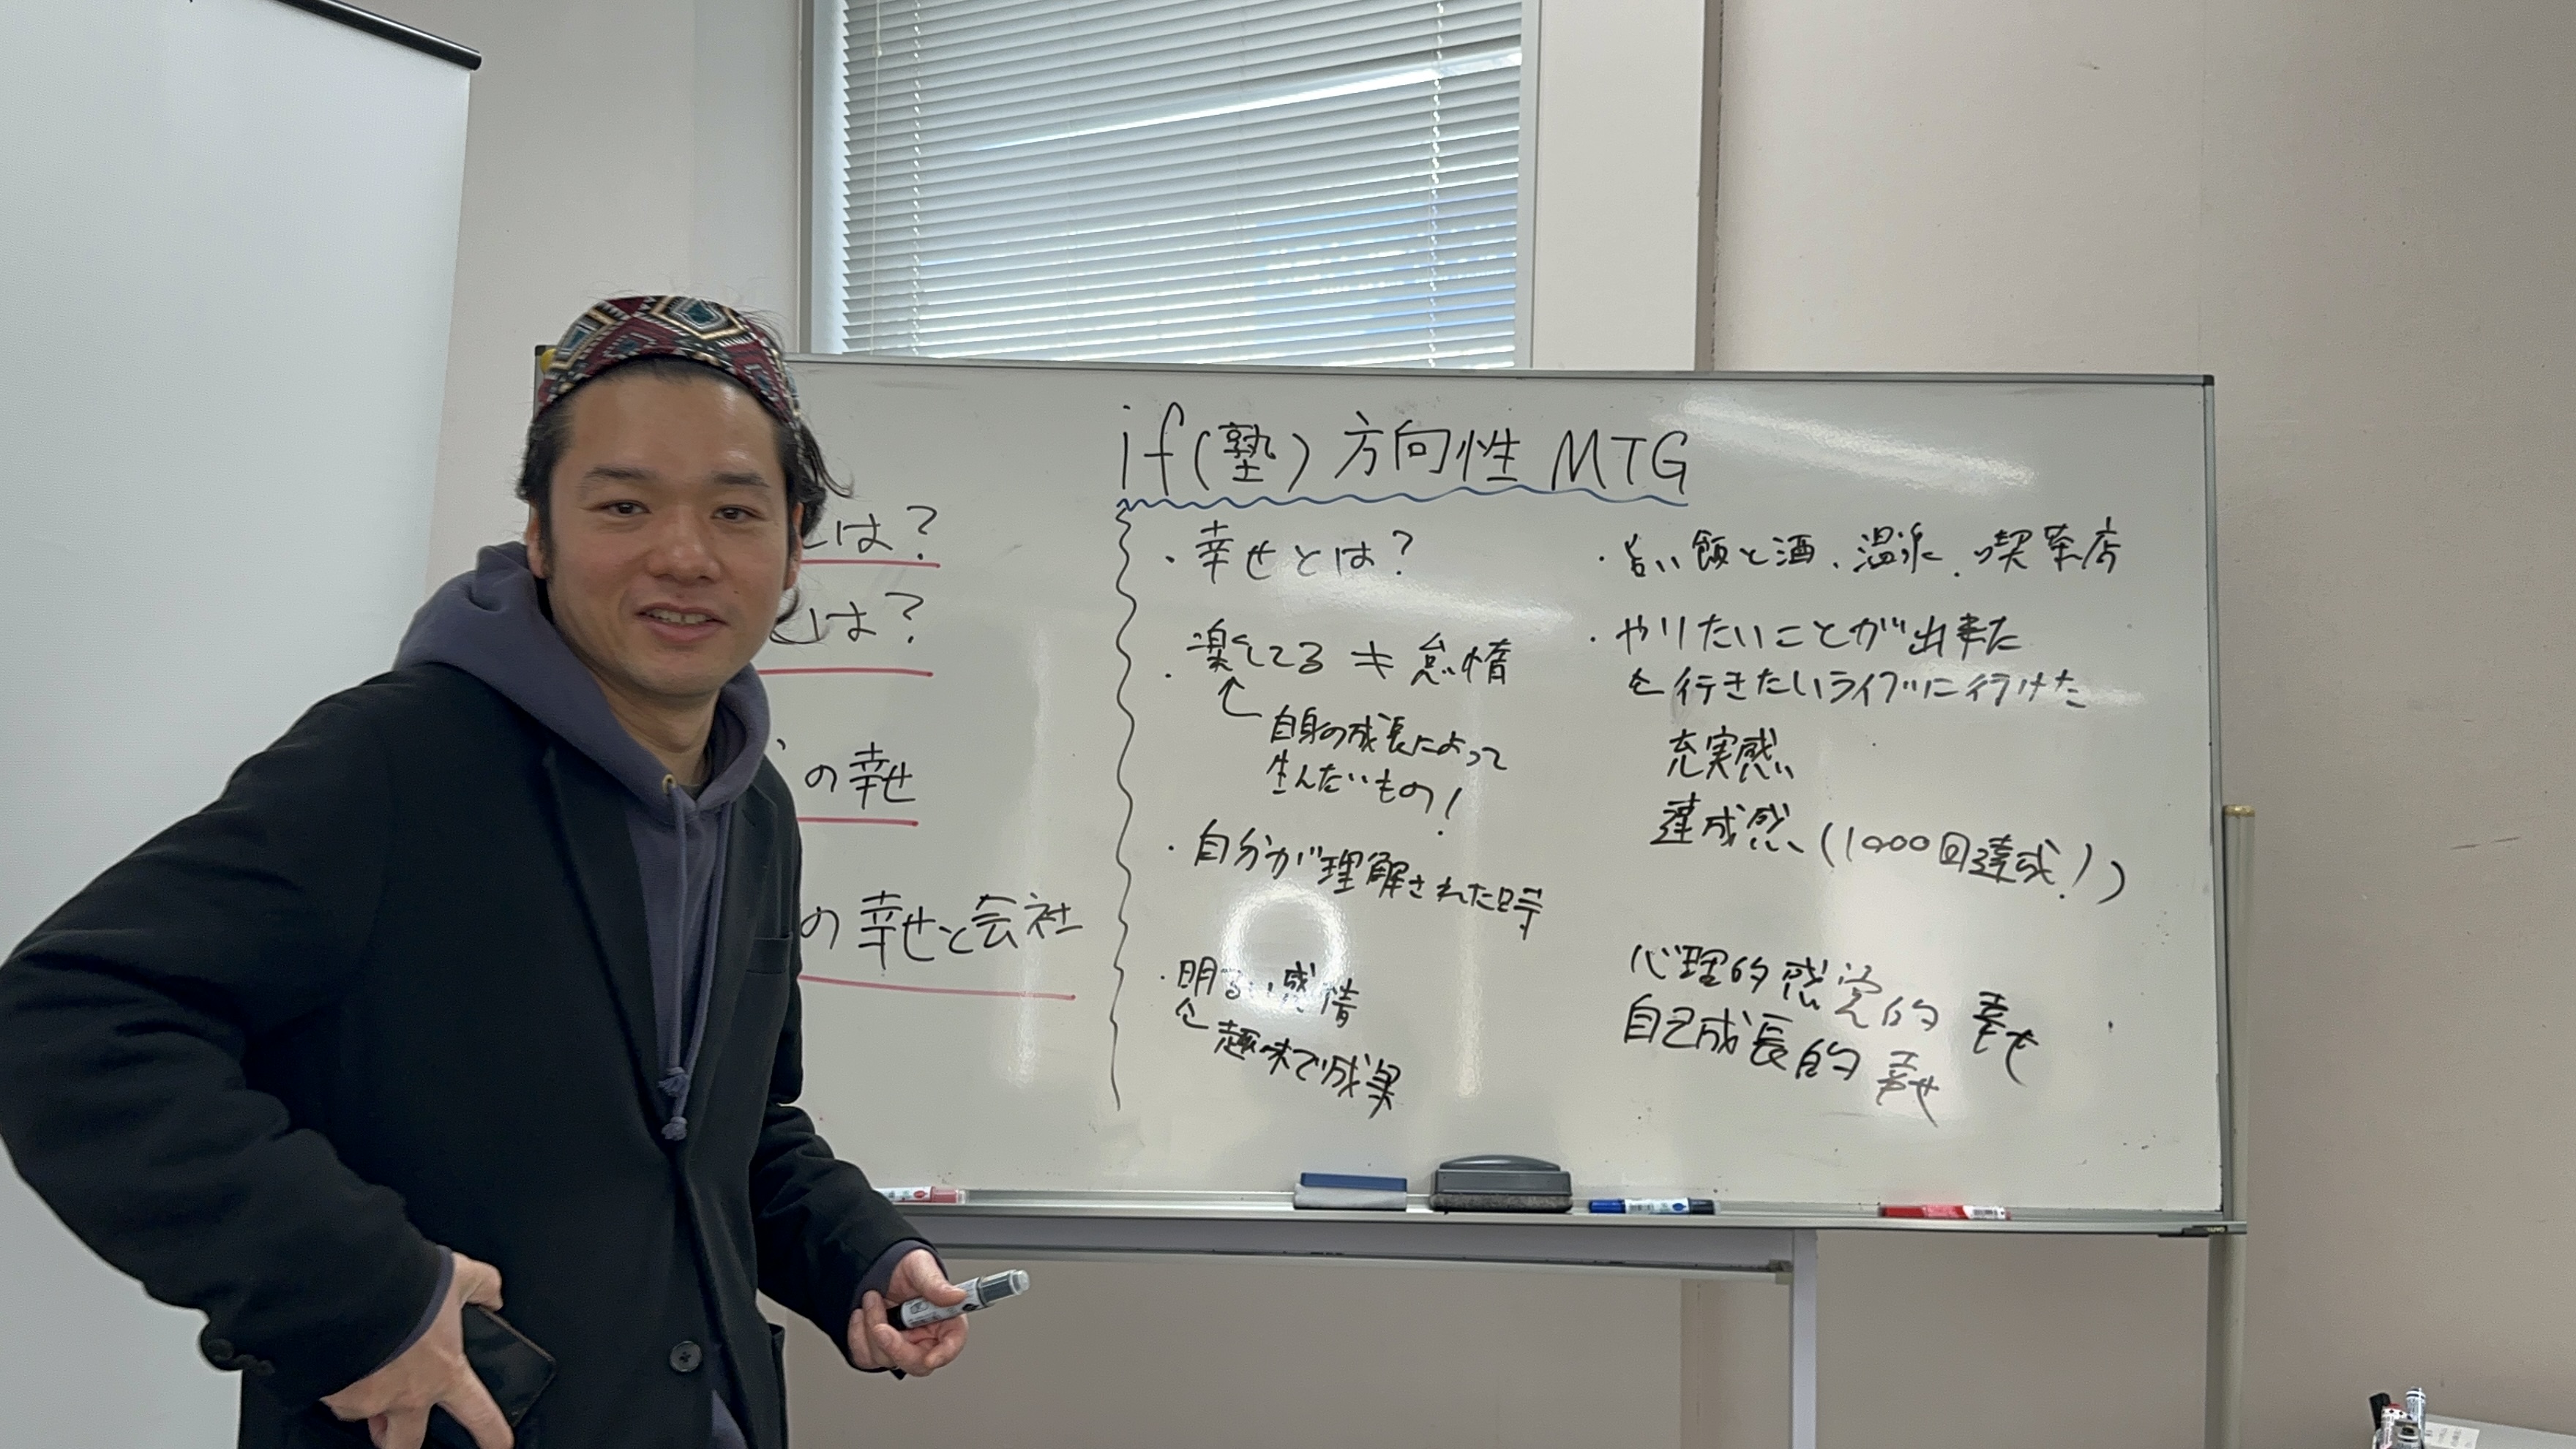 if(塾)方向性 MTG
は?
は?
の幸せ
の幸せと会社
・幸せとは?
・楽してる ≠ 怠惰
自身の成長によって
生んだいもの!
・自分が理解された時
・明るい感情
趣味で成果
・旨い飯と酒、温泉、喫茶店
・やりたいことが出来た
行きたいライブに行けた
充実感
達成感(1000回達成!)
心理的感覚的幸せ
自己成長的幸せ